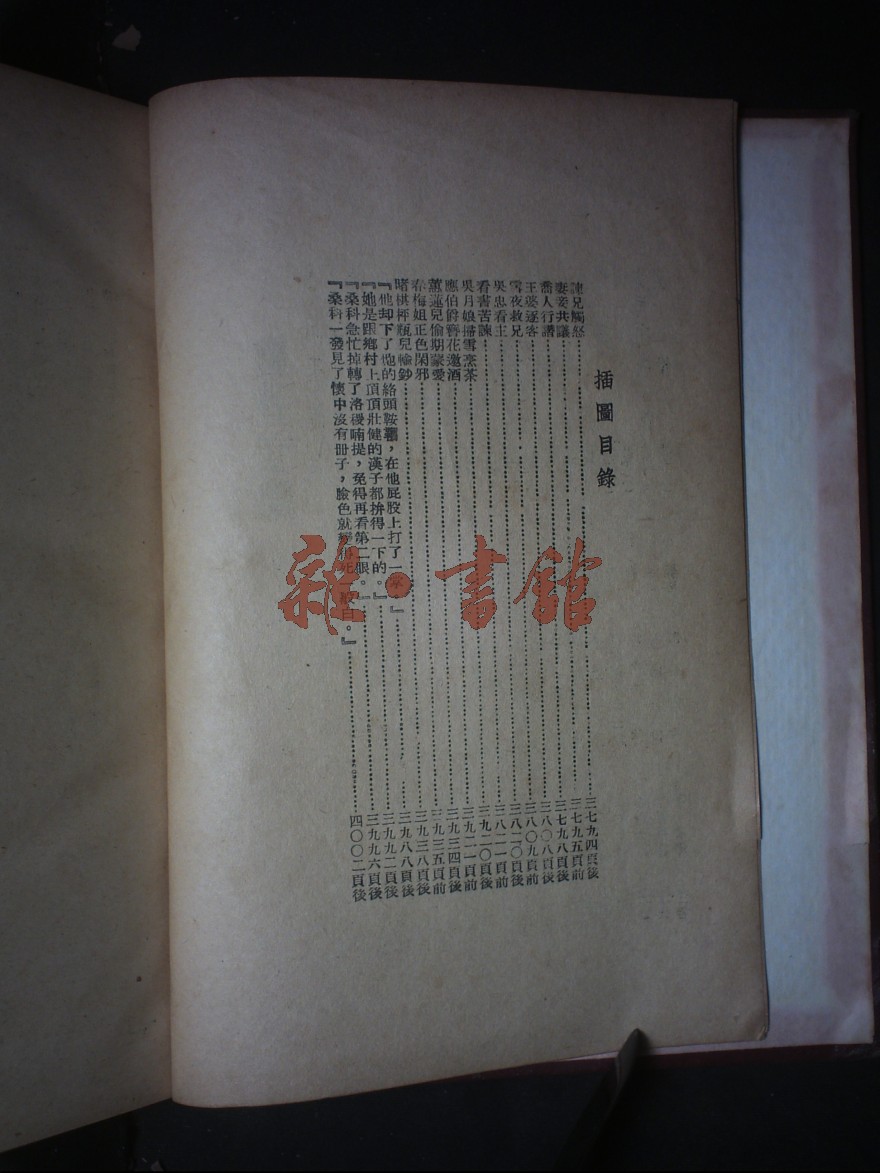 插圖目錄
諫兄觸怒……三七九四頁後
妻妾共議……三七九五頁前
商人行譖……三七九八頁後
王婆逐客……三八〇八頁後
雪夜救兄……三八〇九頁前
吳忠看主……三八二〇頁後
看書苦諫……三八二一頁前
吳月娘掃雪烹茶……三九二〇頁後
應伯爵簪花邀酒……三九二一頁前
蕙蓮兒偷期蒙愛……三九三四頁後
春梅姐正色閑邪……三九三五頁前
賭棋枰瓶兒輸鈔……三九三八頁後
『他却下了他的絡頭鞍韉，在他屁股上打了一』……三九八八頁後
『她是跟鄉村上頂頂壯健的漢子都拚得一下的。』……三九九二頁後
『桑科急忙掉轉了洛稷喃提，免得再看第二眼。』……三九九六頁後
『桑科一發見了懷中沒有冊子，臉色就變得死白。』……四〇〇二頁後
雜·書館